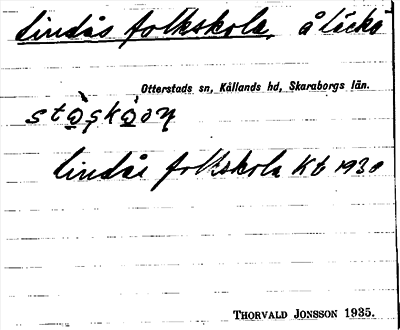 Lindås folkskola, å Läckö
Otterstads sn, Kållands hd, Skaraborgs län.
Lindås folkskola Kt 1930
THORVALD JONSSON 1935.